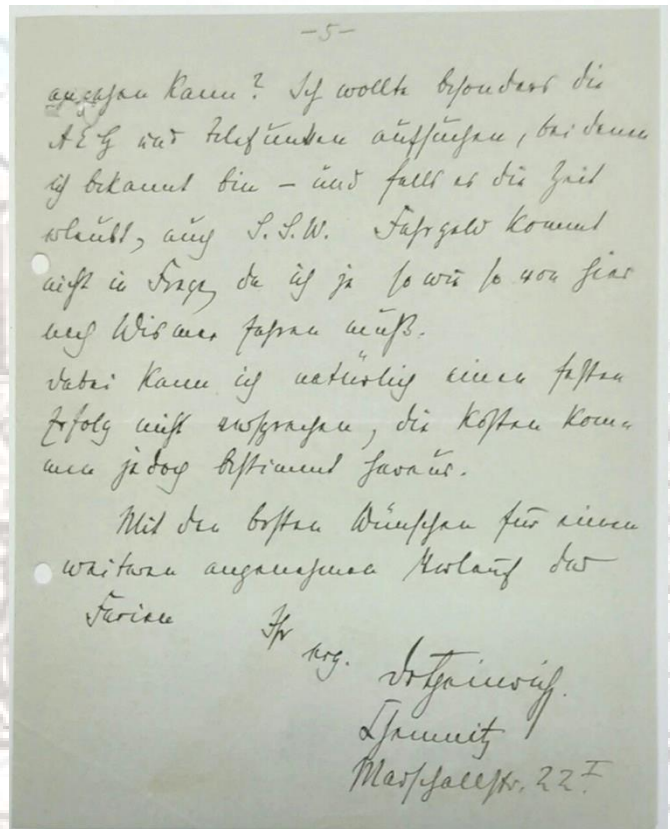 -5-
angehen kann? Ich wollte besonders die
AEG und Telefunken aufsuchen, bei denen
ich bekannt bin – und falls es die Zeit
erlaubt, auch S.S.W. Fahrgeld kommt
nicht in Frage, da ich ja so wie so von hier
nach Wismar fahren muß.
Dabei kann ich natürlich einen festen
Erfolg nicht versprechen, die Kosten kom-
men jedoch bestimmt heraus.
Mit den besten Wünschen für einen
weiteren angenehmen Verlauf der
Ferien
Ihr
erg.
Dr Heinrich.
Chemnitz
Marschallstr. 22 I.